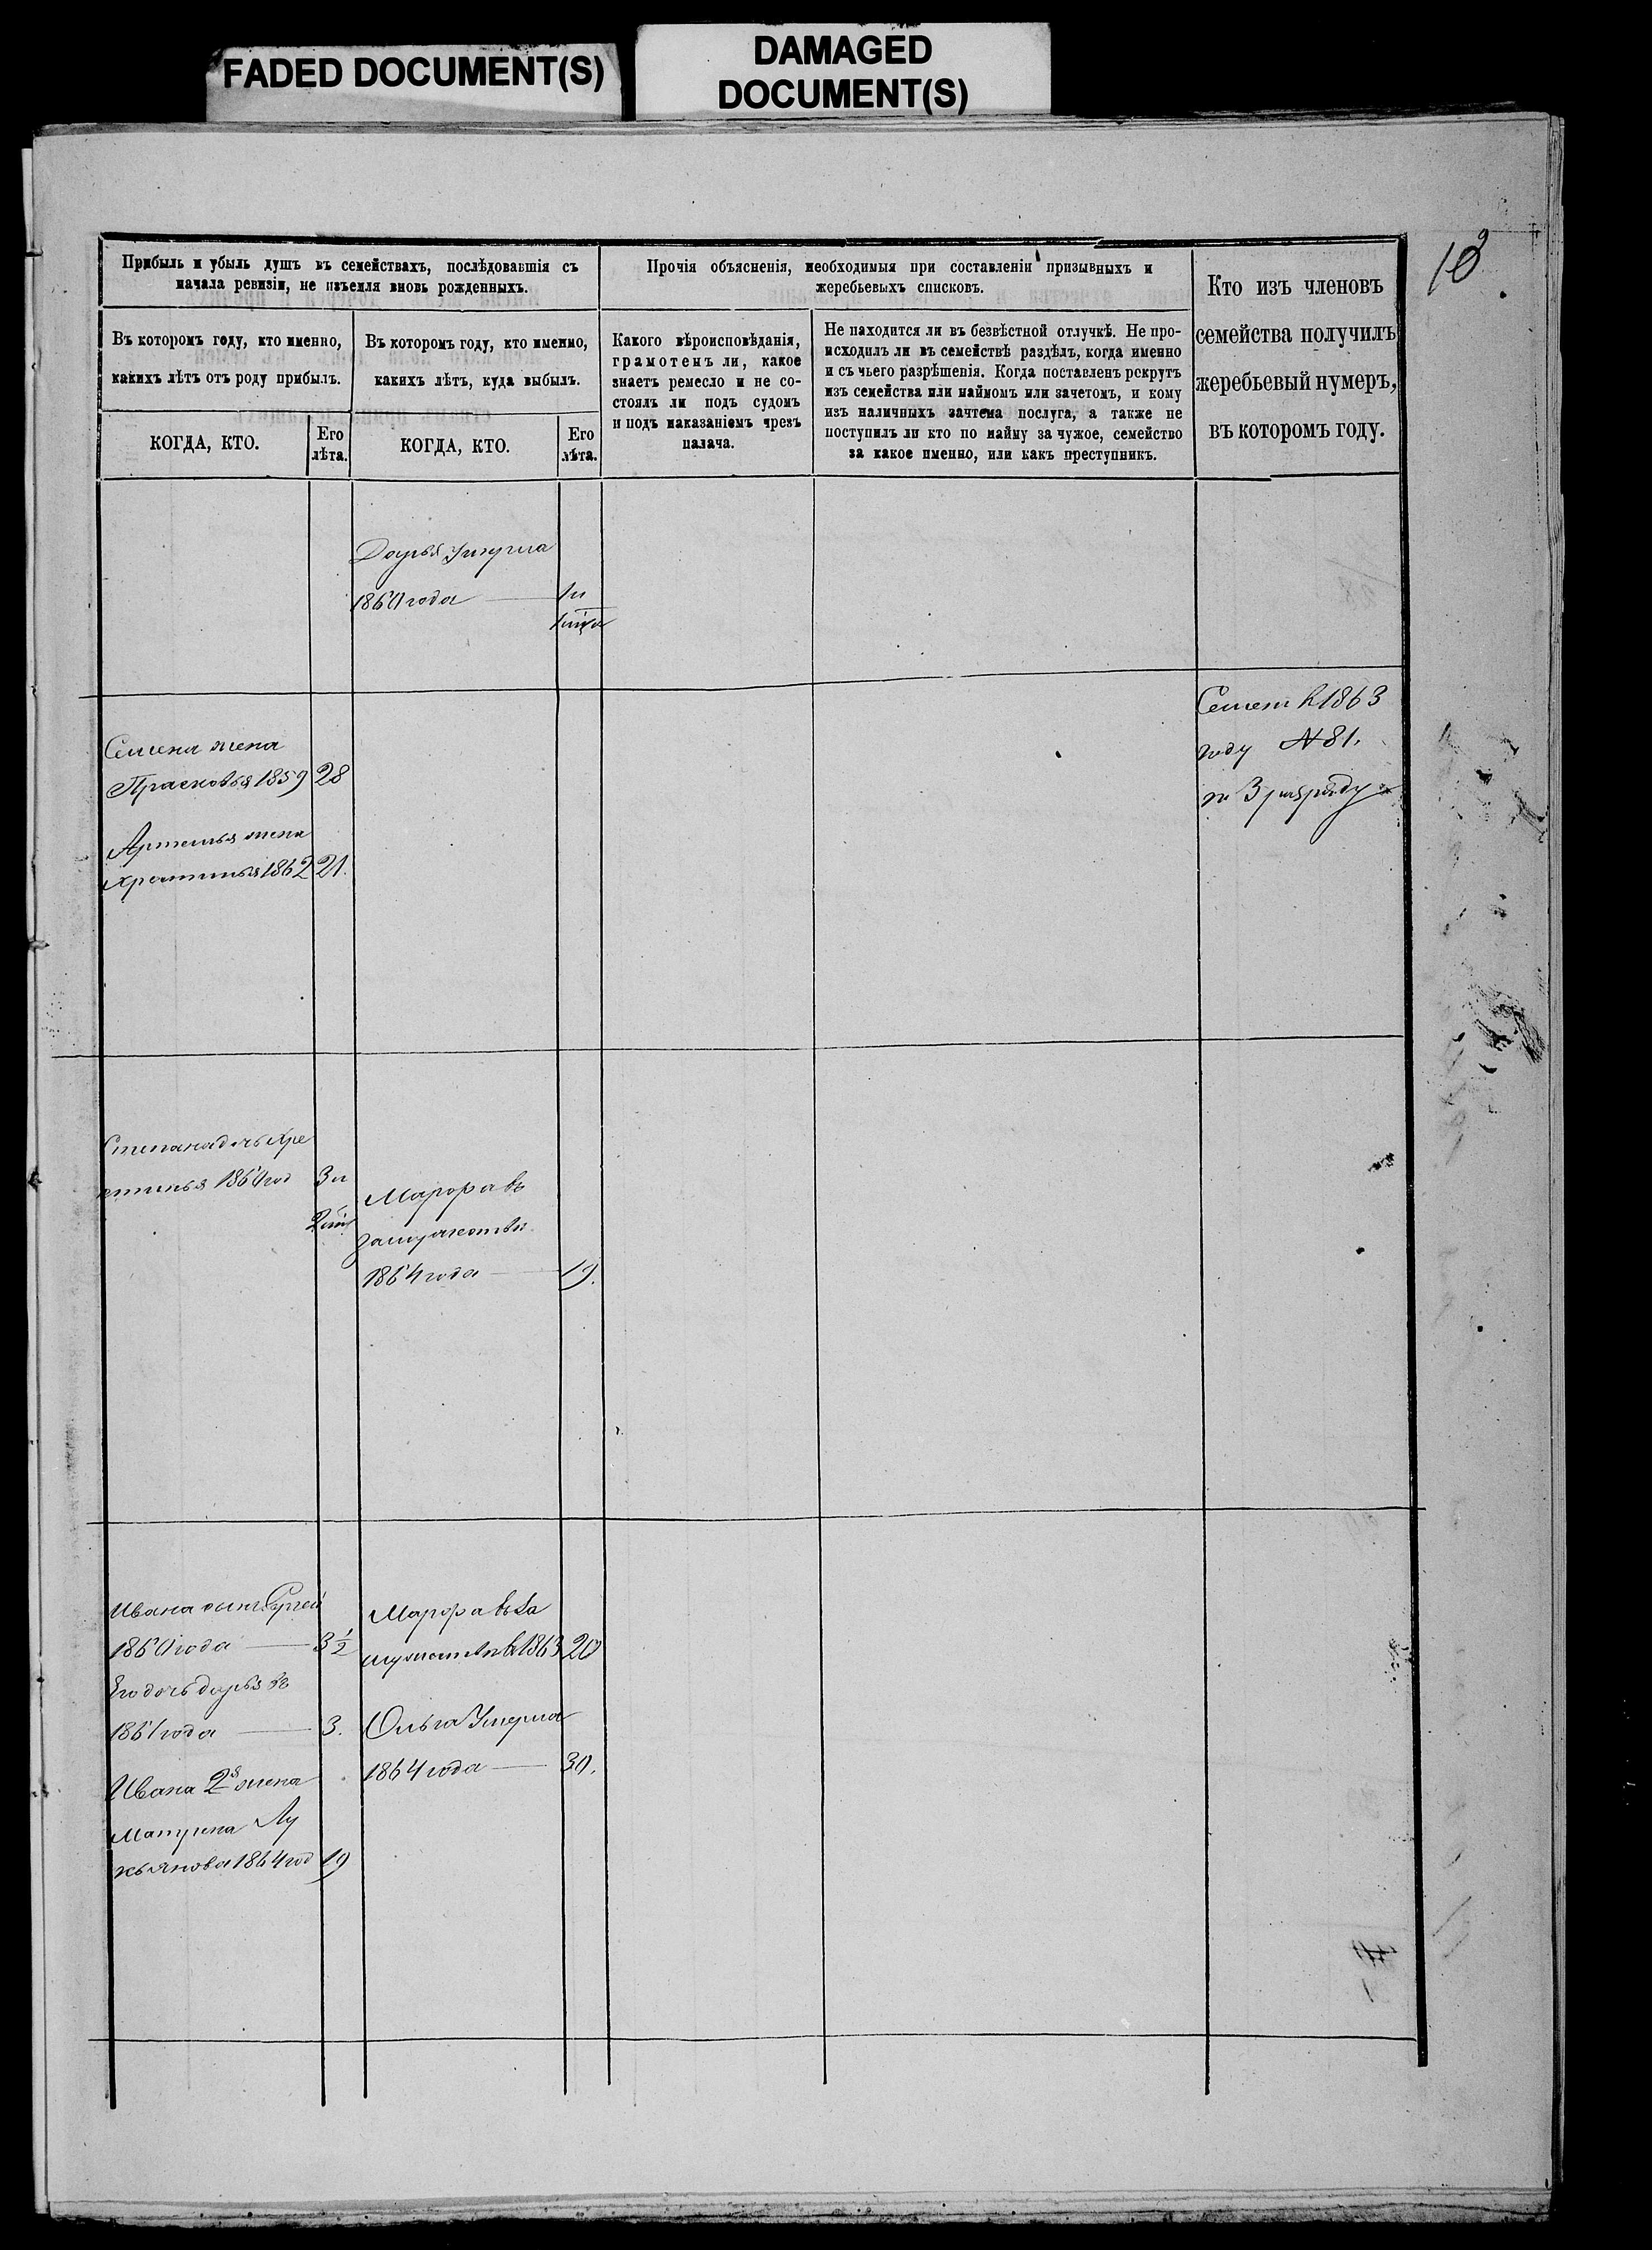 FADED DOCUMENT(S)
DAMAGED
DOCUMENT(S)
10
Прибыль и убыль душъ въ семействахъ, послѣдовавшія съ
начала ревизіи, не изъемля вновь рожденныхъ.
Прочія объясненія, необходимыя при составленіи призывныхъ и
жеребьевыхъ списковъ.
Кто изъ членовъ
семейства получилъ
жеребьевый нумеръ,
въ которомъ году.
Въ которомъ году, кто именно,
какихъ лѣтъ отъ роду прибылъ.
Въ которомъ году, кто именно,
какихъ лѣтъ, куда выбылъ.
Какого вѣроисповѣданія,
грамотенъ ли, какое
знаетъ ремесло и не со-
стоялъ ли подъ судомъ
и подъ наказаніемъ чрезъ
палача.
Не находится ли въ безвѣстной отлучкѣ. Не про-
исходилъ ли въ семействѣ раздѣлъ, когда именно
и съ чьего разрѣшенія. Когда поставленъ рекрутъ
изъ семейства или наймомъ или зачетомъ, и кому
изъ наличныхъ зачтена послуга, а также не
поступилъ ли кто по найму за чужое, семейство
за какое именно, или какъ преступникъ.
КОГДА, КТО.
Его
лѣта.
КОГДА, КТО.
Его
лѣта.
Дарья умерла
1860 года 1 и
Семена жена
Прасковья 1859 28
Артемья жена
Хрестинья 1862 21.
Семенъ в 1863
году №81.
по 3 разряду
Степана дочь Хре
стинья 1860 год 3 и
Марфа въ
замужество
1864 года 19.
Ивана сынъ Сергей
1860 года 3½
Его дочь дарья въ
1861 года 3.
Ивана 2я жена
Матрена Лу
кьянова 1864 год 19
Марфа въ за
мужество в 1863 20
Ольга Умерла
1864 года 30.